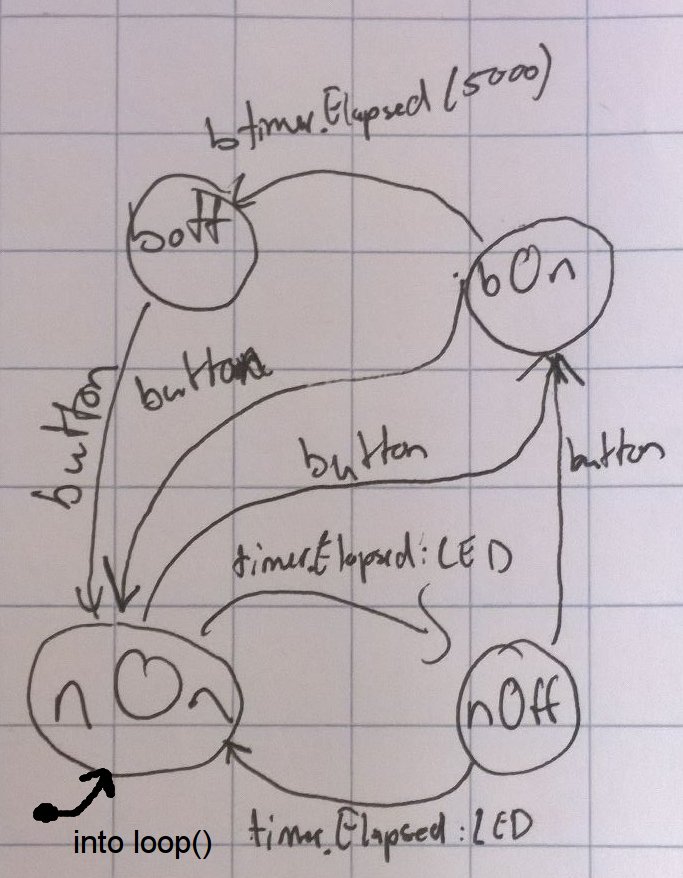 btimer.Elapsed(5000)
boff
bOn
button
button
button
button
timer.Elapsed:LED
nOn
nOff
timer.Elapsed:LED
into loop()